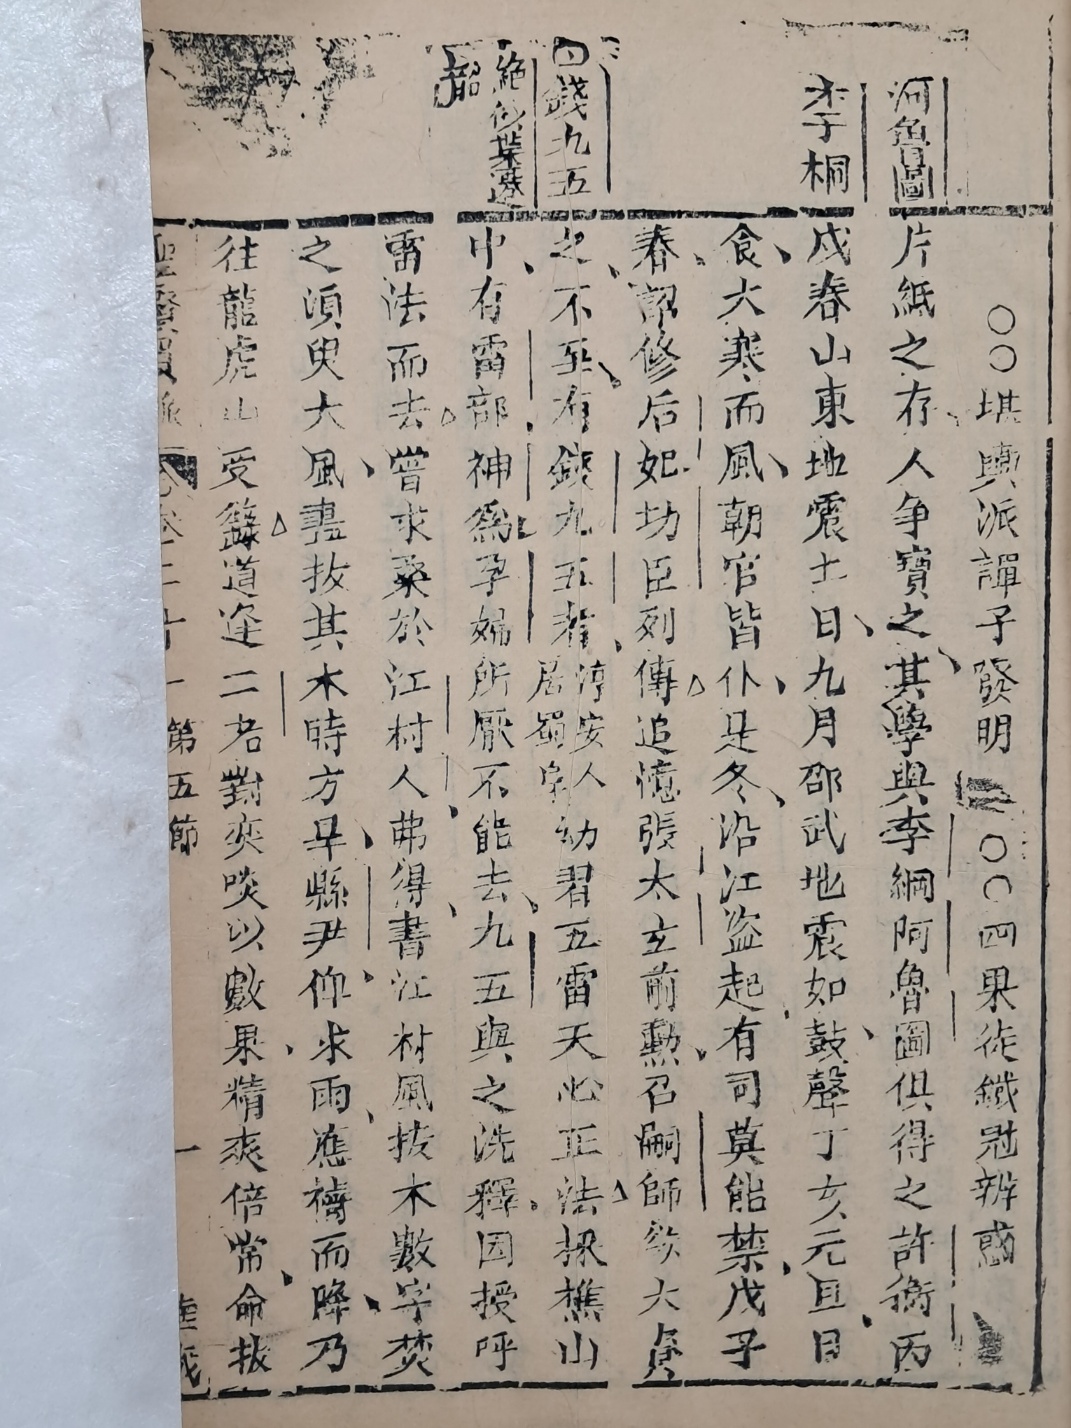 河魯圖
李桐
白錢九五
絕似葉遷
韶
○○堪輿派譚子發明 ○○四果徒鐵冠辨惑
片紙之存人争寶之其學與李綱阿魯圖俱得之許衡丙
戌春山東地震土日九月邵武地震如鼓聲丁亥元旦日
食大寒而風朝官皆仆是冬沿江盜起有司莫能禁戊子
春詔修后妃功臣列傳追憶張太玄前勲召嗣師欲大真
之不至有錢九五者淳安人居蜀阜幼習五雷天心正法採樵山
中有雷部神為孕婦所厭不能去九五與之洗釋因授呼
雷法而去嘗求桑於江村人弗得書江村風拔木數字焚
之須臾大風盡拔其木時方旱縣尹仰求雨應禱而降乃
往龍虎山受籙道逢二老對奕啖以數果精爽倍常命拔
第五節